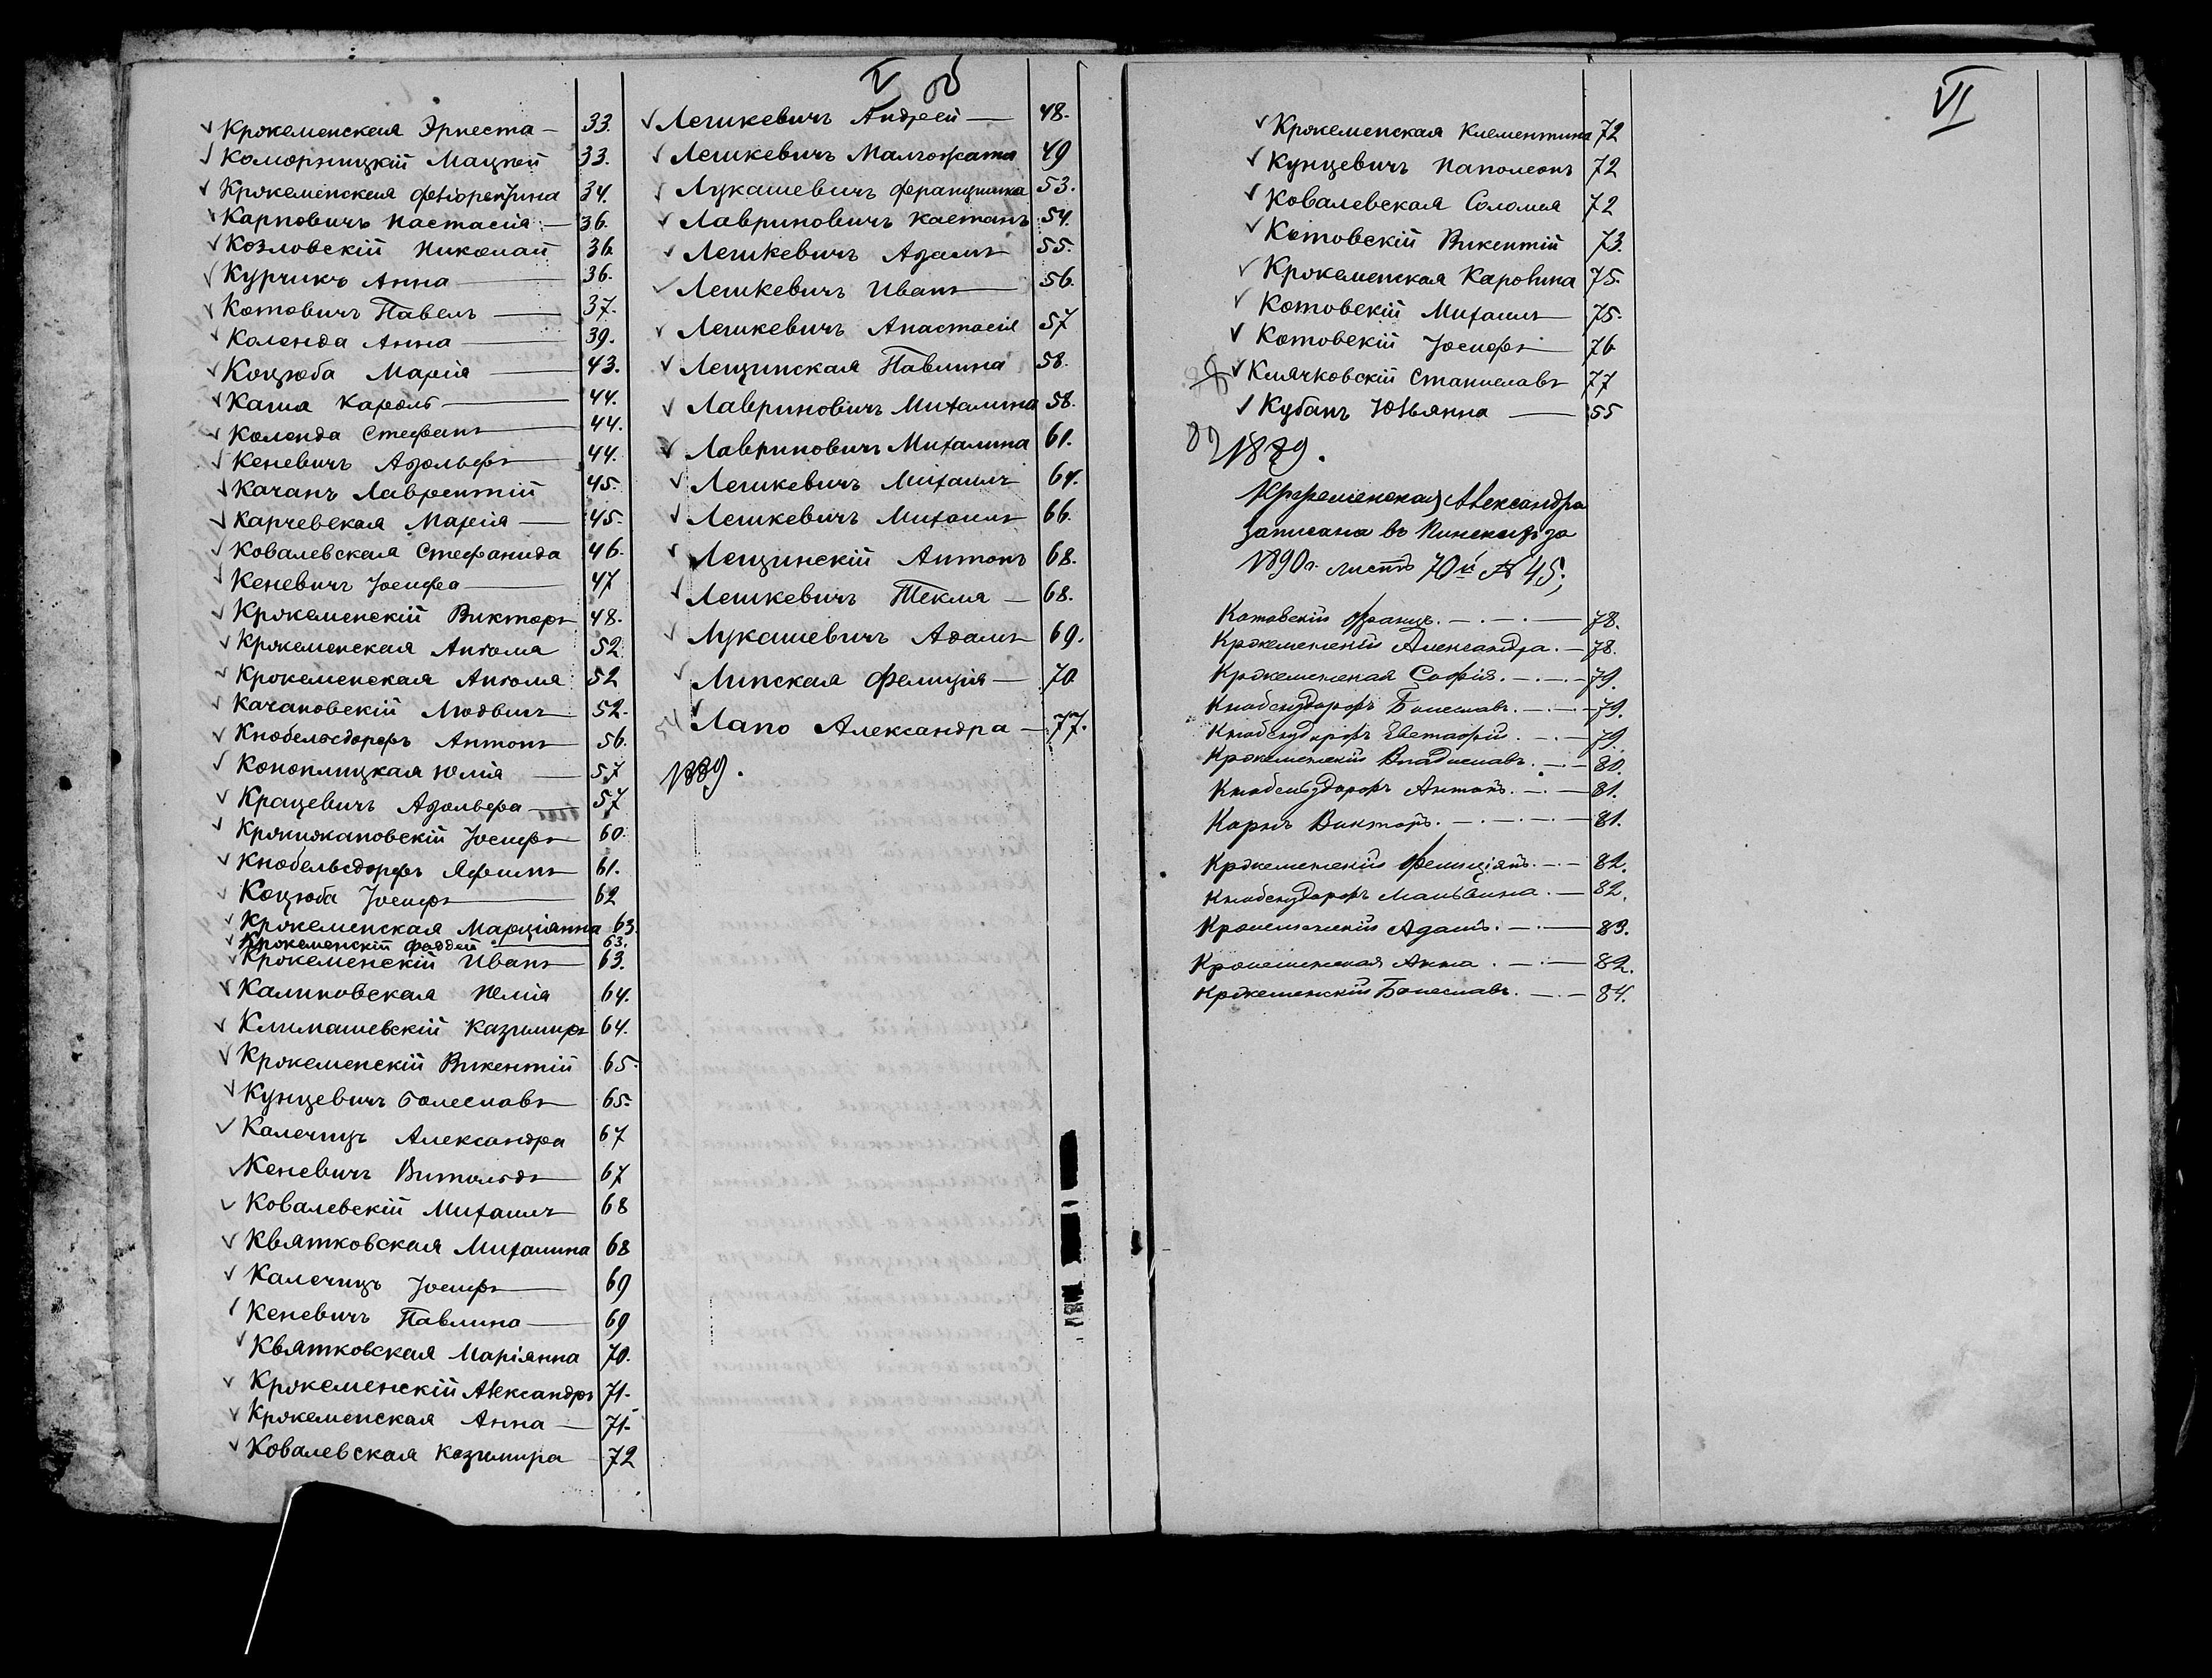 V об
Кржеменская Эрнеста — 33.
Коморницкій Мацѣй 33.
Кржеменская Флорентина 34.
Карповичъ Настасія — 36.
Козловскій Николай 36.
Курчикъ Анна — 36.
Котовичъ Павелъ — 37.
Коленда Анна — 39.
Коцюба Марія — 43.
Каша Кароль — 44.
Коленда Стефанъ — 44.
Кеневичъ Адольфъ — 44.
Качанъ Лаврентій 45.
Карчевская Марія — 45.
Ковалевская Стефанида 46.
Кеневичъ Іосифа — 47
Кржеменскій Викторъ 48.
Кржеменская Антонія 52.
Кржеменская Антонія 52
Качановскій Людвигъ 52.
Кнобельсдорфъ Антонъ 56.
Коноплицкая Юлія — 57
Крацевичъ Адольфа — 57
Кржижановскій Іосифъ 60.
Кнобельсдорфъ 61.
Коцюба Іосифъ — 62
Кржеменская Марціянна 63.
Кржеменскій Фаддей — 63.
Кржеменскій Иванъ 63.
Калиновская Юлія 64.
Климашевскій Казимиръ 64.
Кржеменскій Викентій 65.
Кунцевичъ Болеславъ 65.
Калечицъ Александра 67
Кеневичъ Витольдъ 67
Ковалевскій Михаилъ 68
Квятковская Михалина 68
Калечицъ Іосифъ — 69
Кеневичъ Павлина — 69
Квятковская Маріянна 70.
Кржеменскій Александръ 71.
Кржеменская Анна — 71.
Ковалевская Казимира 72
Лешкевичъ Андрей — 48.
Лешкевичъ Малгожата 49
Лукашевичъ Францишка 53.
Лавриновичъ Каетанъ 54.
Лешкевичъ Адамъ 55.
Лешкевичъ Иванъ — 56.
Лешкевичъ Анастасія 57
Лещинская Павлина 58.
Лавриновичъ Михалина 58.
Лавриновичъ Михалина 61.
Лешкевичъ Михаилъ 64.
Лешкевичъ Михаилъ 66.
Лещинскій Антонъ 68.
Лешкевичъ Текля — 68.
Лукашевичъ Адамъ 69.
Липская Фелиція — 70
Лапо Александра — 77.
1889.
VI
Кржеменская Клементина 72
Кунцевичъ Наполеонъ 72
Ковалевская Соломея 72
Котовскій Викентій 73.
Кржеменская Каролина 75.
Котовскій Михаилъ 75.
Котовскій Іосифъ 76
Клячковскій Станиславъ 77
Кубанъ Юльянна — 55
1889.
Кржеменская Александра
записана въ за
1890 г. листъ 70й № 45;
Котовскій Францъ. — 78.
Кржеменскій Александра. — 78.
Кржеменская Софія. — 79.
Кнобельздорфъ Болеславъ. — 79.
Кнобельздорфъ Евстафій. — 79.
Кржеменскій Владиславъ. — 80.
Кнобельздорфъ Антонъ. — 81.
Викторъ. — 81.
Кржеменскій Фелиціянъ. — 82.
Кнобельздорфъ Мальвина. — 82.
Кржеменскій Адамъ. — 83.
Кржеменская Анна. — 82.
Кржеменскій Болеславъ. — 84.